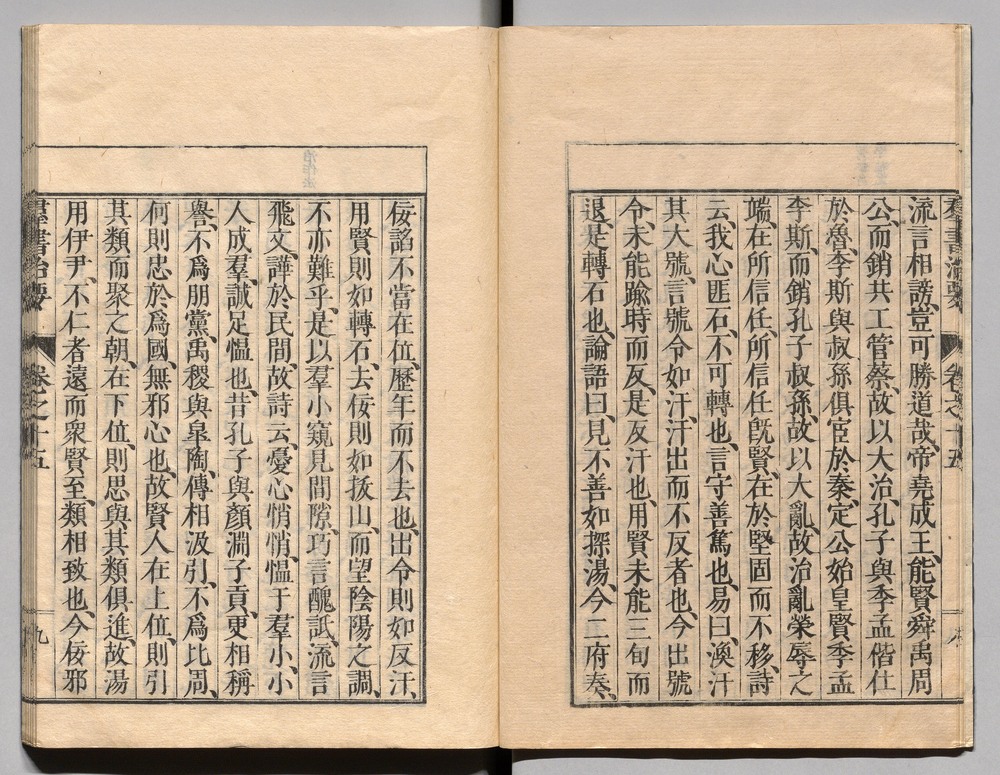 羣書治要 卷之十五 八
流言相謗、豈可勝道哉、帝堯成王、能賢舜禹周
公、而銷共工管蔡、故以大治、孔子與季孟偕仕
於魯、李斯與叔孫俱宦於秦、定公始皇賢季孟
李斯、而銷孔子叔孫、故以大亂、故治亂榮辱之
端、在所信任、所信任既賢、在於堅固而不移、詩
云、我心匪石、不可轉也、言守善篤也、易曰、渙汗
其大號、言號令如汗、汗出而不反者也、今出號
令、未能踰時而反、是反汗也、用賢未能三旬而
退、是轉石也、論語曰、見不善如探湯、今二府奏、
佞諂不當在位、歷年而不去也、出令則如反汗、
用賢則如轉石、去佞則如拔山、而望陰陽之調、
不亦難乎、是以羣小窺見間隙、巧言醜詆、流言
飛文、譁於民間、故詩云、憂心悄悄、慍于羣小、小
人成羣、誠足慍也、昔孔子與顏淵子貢、更相稱
譽、不爲朋黨、禹稷與皐陶、傳相汲引、不爲比周、
何則忠於爲國、無邪心也、故賢人在上位、則引
其類、而聚之朝、在下位、則思與其類俱進、故湯
用伊尹、不仁者遠而衆賢至、類相致也、今佞邪
羣書治要 卷之十五 九